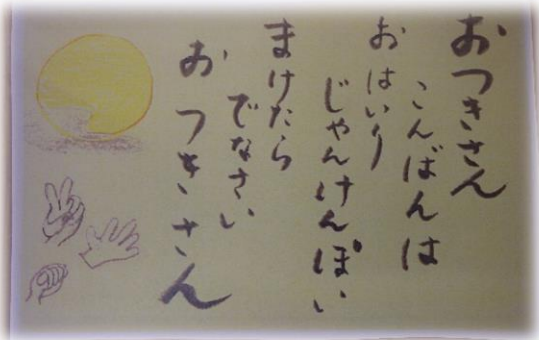 おつきさん
こんばんは
おはいり
じゃんけんぽい
まけたら
でなさい
おつきさん